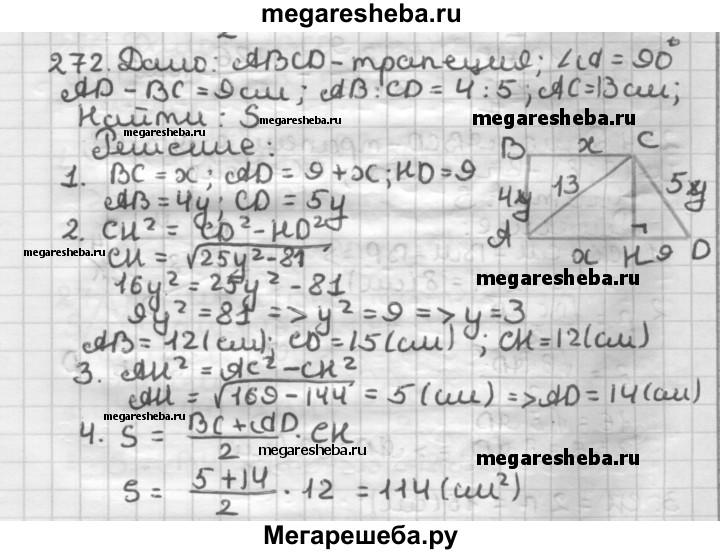 megaresheba.ru
272. Дано: ABCD - трапеция; ∠A = 90°
AD - BC = 9 см; AB : CD = 4 : 5; AC = 13 см;
Найти: S
megaresheba.ru
megaresheba.ru
megaresheba.ru
Решение:
1. BC = x; AD = 9 + x; HD = 9
AB = 4y; CD = 5y
B x C
4y 13 5y
A x H 9 D
2. CH² = CD² - HD²
megaresheba.ru
CH = √25y² - 81
megaresheba.ru
16y² = 25y² - 81
9y² = 81 => y² = 9 => y = 3
AB = 12 (см); CD = 15 (см); CH = 12 (см)
3. AH² = AC² - CH²
AH = √169 - 144 = 5 (см) => AD = 14 (см)
megaresheba.ru
4. S = BC + AD / 2 · CH
megaresheba.ru
megaresheba.ru
S = 5 + 14 / 2 · 12 = 114 (см²)
Мегарешеба.ру